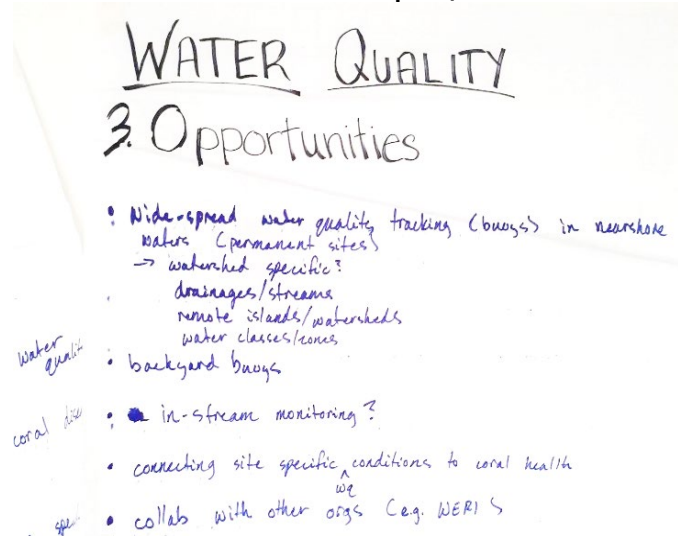 WATER QUALITY
3. Opportunities
• Wide-spread water quality tracking (buoys) in nearshore
waters (permanent sites)
→ watershed specific?
drainages/streams
remote islands/watersheds
water classes/zones
water
• backyard buoys
coral
• in-stream monitoring?
• connecting site specific ^ conditions to coral health
wq
• collab with other orgs (e.g. WERI